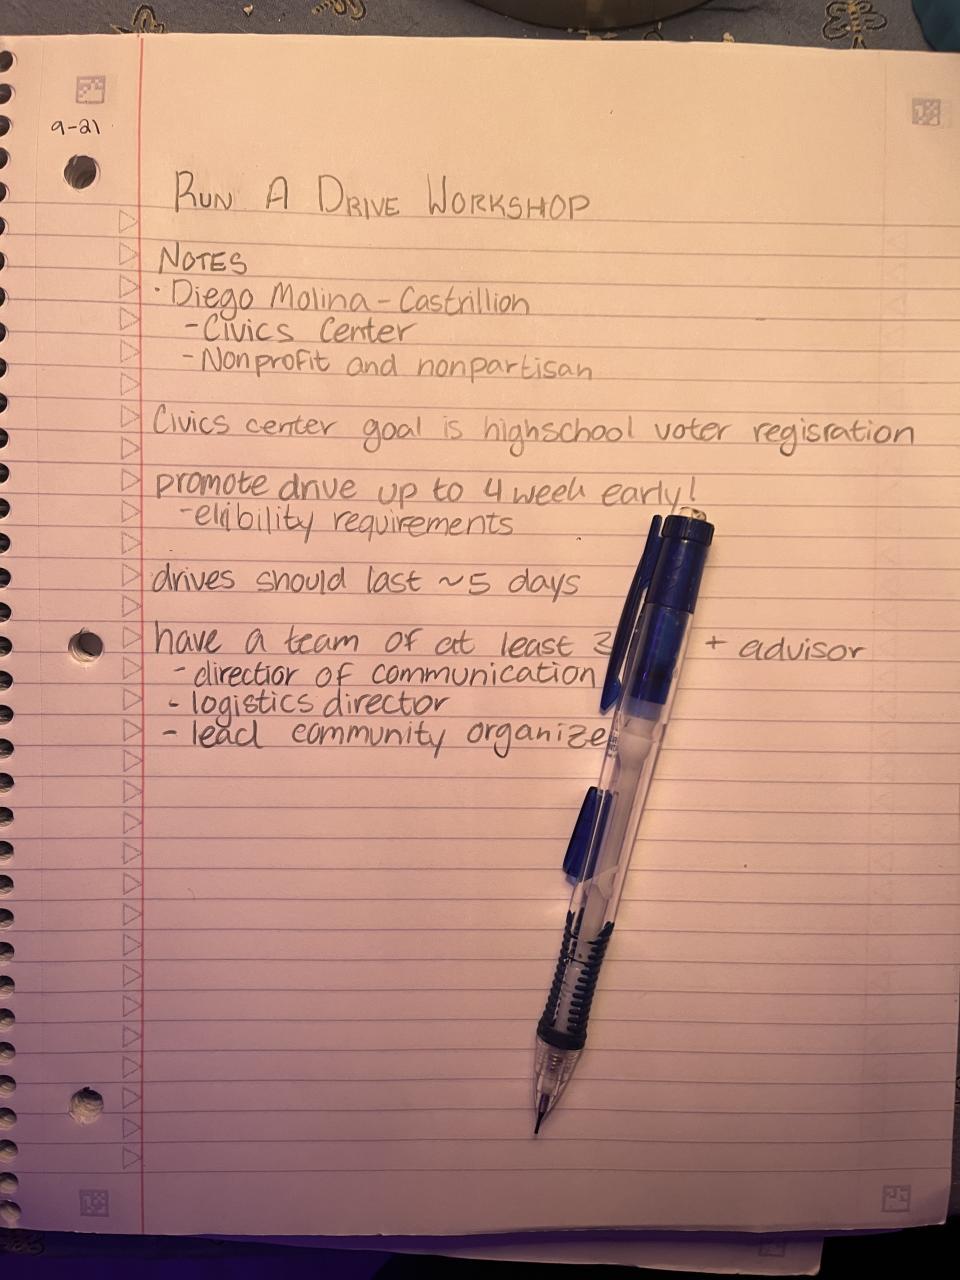 9-21
RUN A DRIVE WORKSHOP
NOTES
· Diego Molina-Castrillion
- Civics Center
- Nonprofit and nonpartisan
Civics center goal is highschool voter regisration
promote drive up to 4 week early!
- elibility requirements
drives should last ~5 days
have a team of at least 3 + advisor
- director of communication
- logistics director
- lead community organize